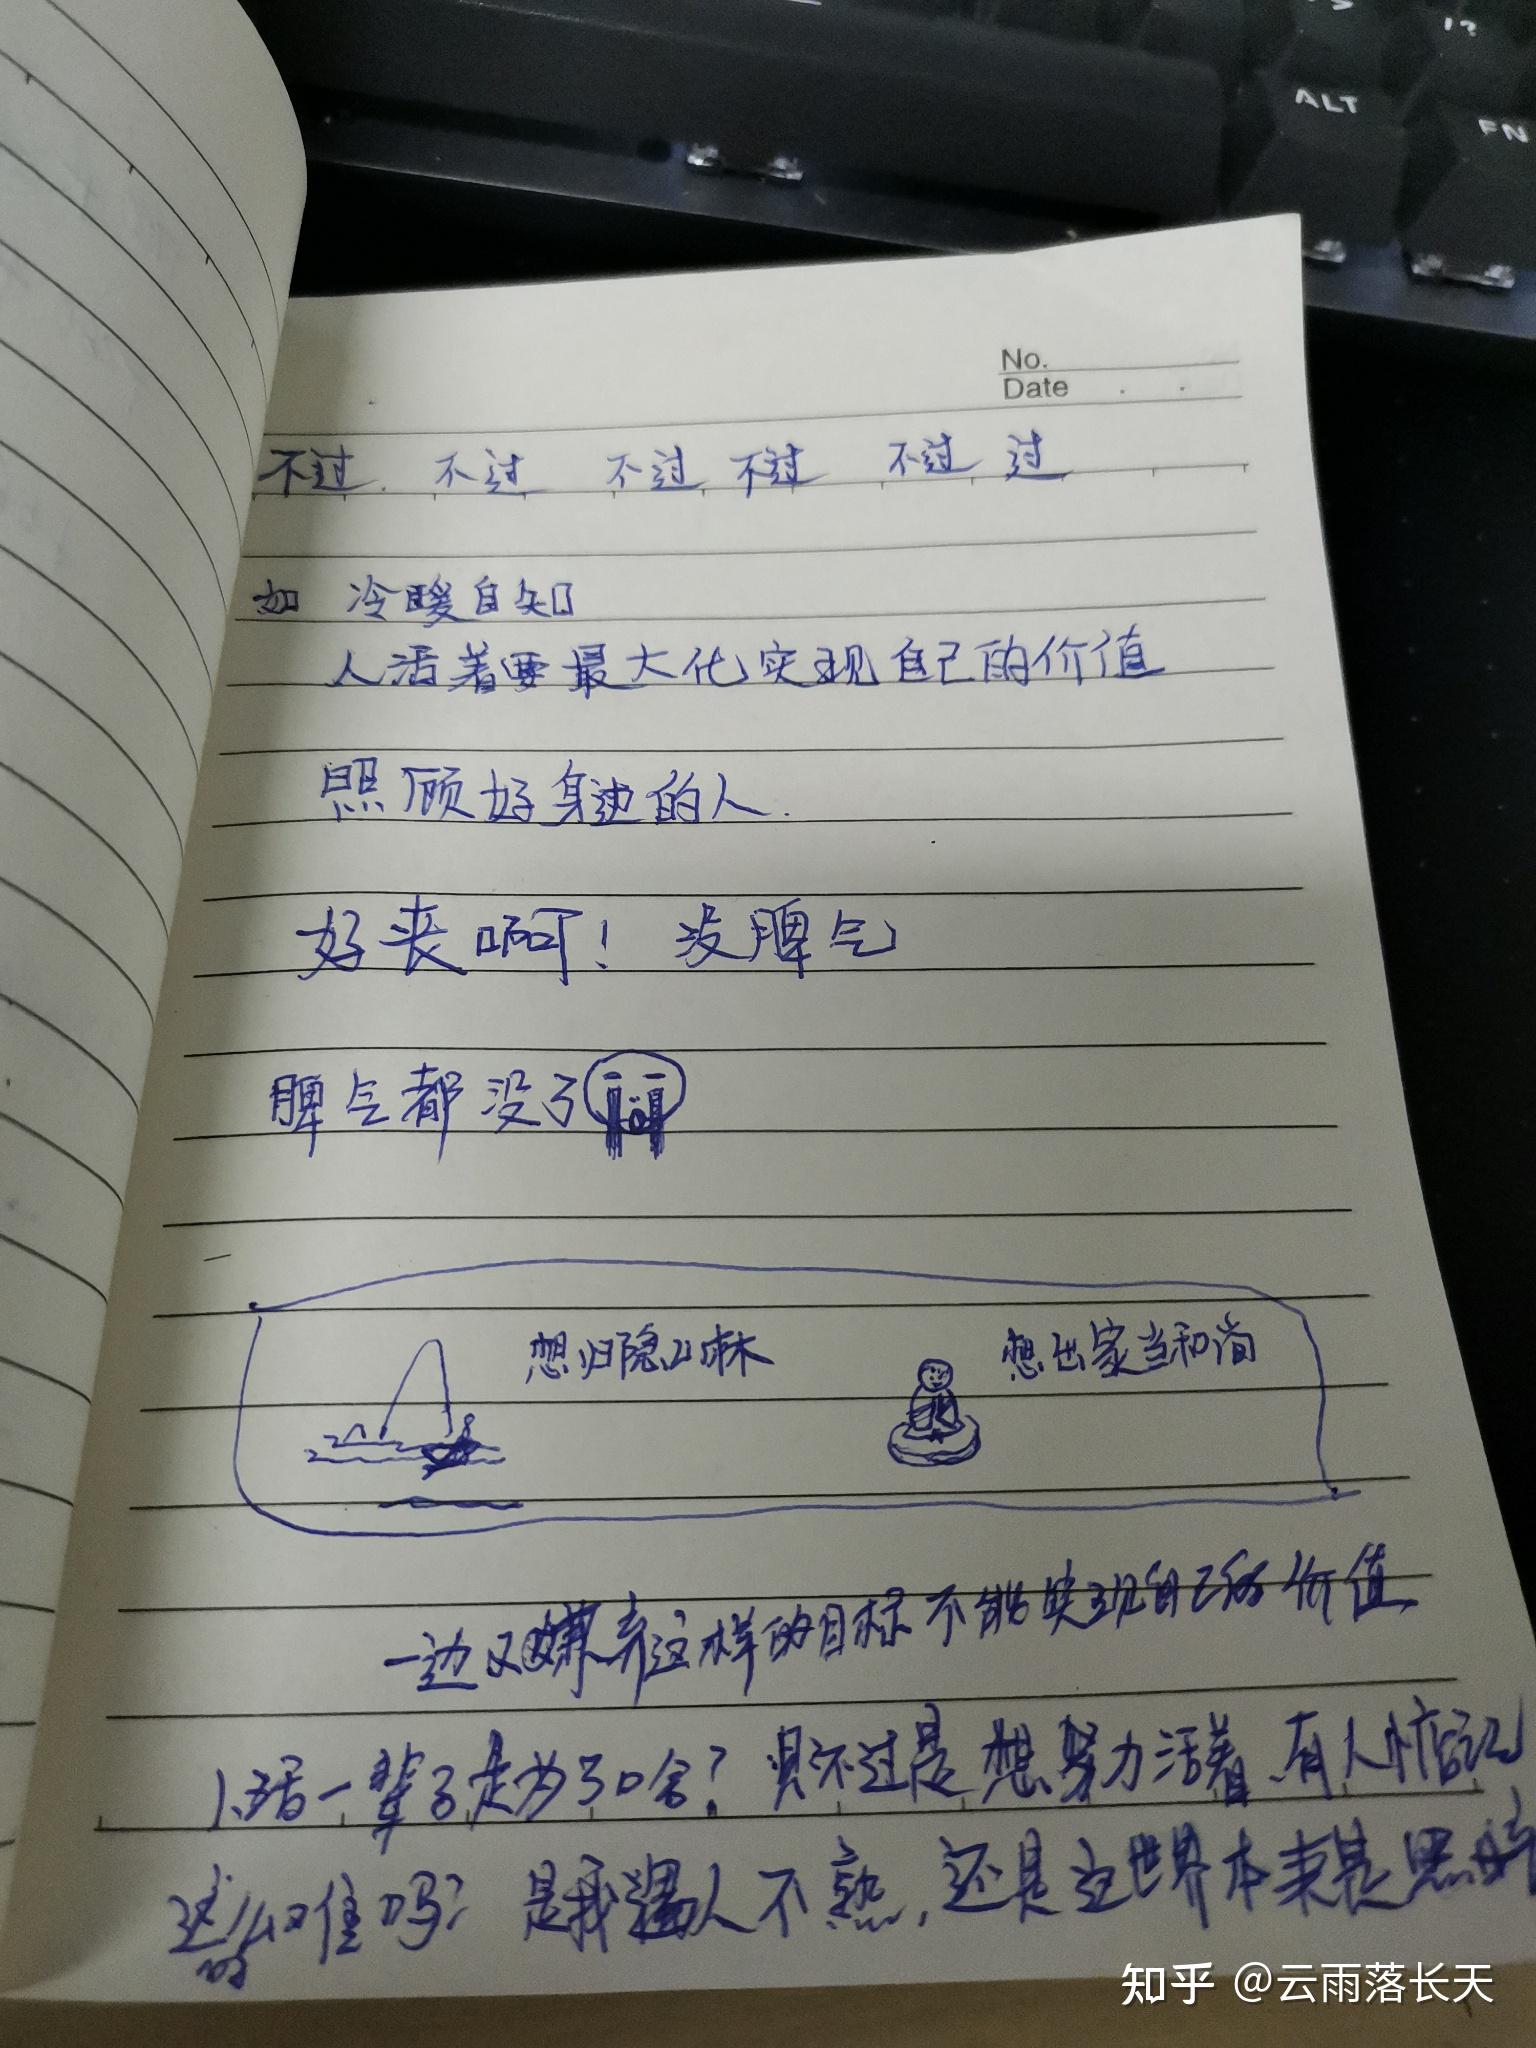 ALT
FN
No.
Date
不过 不过 不过 不过 不过 过
如 冷暖自知
人活着要最大化实现自己的价值
照顾好身边的人.
好丧啊! 没脾气
脾气都没了
想归隐山林 想出家当和尚
一边又嫌弃这样的目标不能实现自己的价值
人活一辈子是为了啥? 只不过是想努力活着、有人惦记
这么难吗? 是我遇人不熟, 还是这世界本来是黑暗的
知乎 @云雨落长天